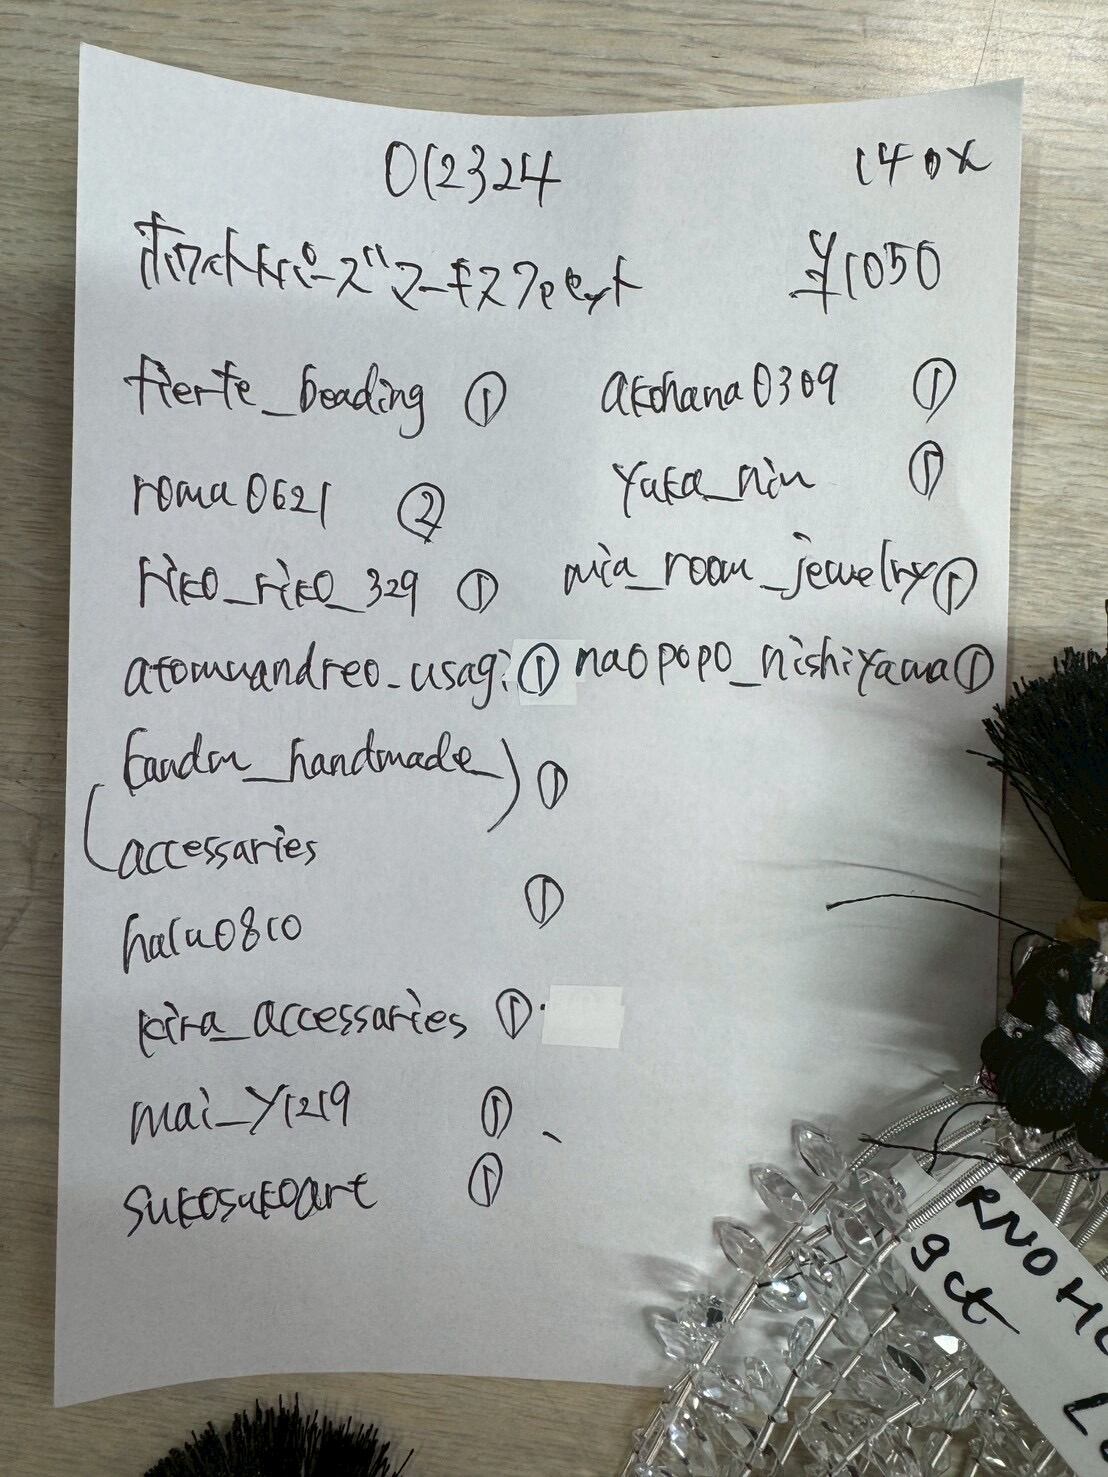 012324
140x
ホワイトトパーズマーキスファセット ¥1050
fierte_beading ①
akohana0309 ①
roma0621 ②
yuka_nin ①
riko_riko_329 ①
mia_room_jewelry ①
atomuandreo_usagi ①
naopopo_nishiyama ①
(handm_handmade_) ①
accessaries
halu0810 ①
kira_accessaries ①
mai_y1219 ①
sukosukoart ①
RNOH
9ct